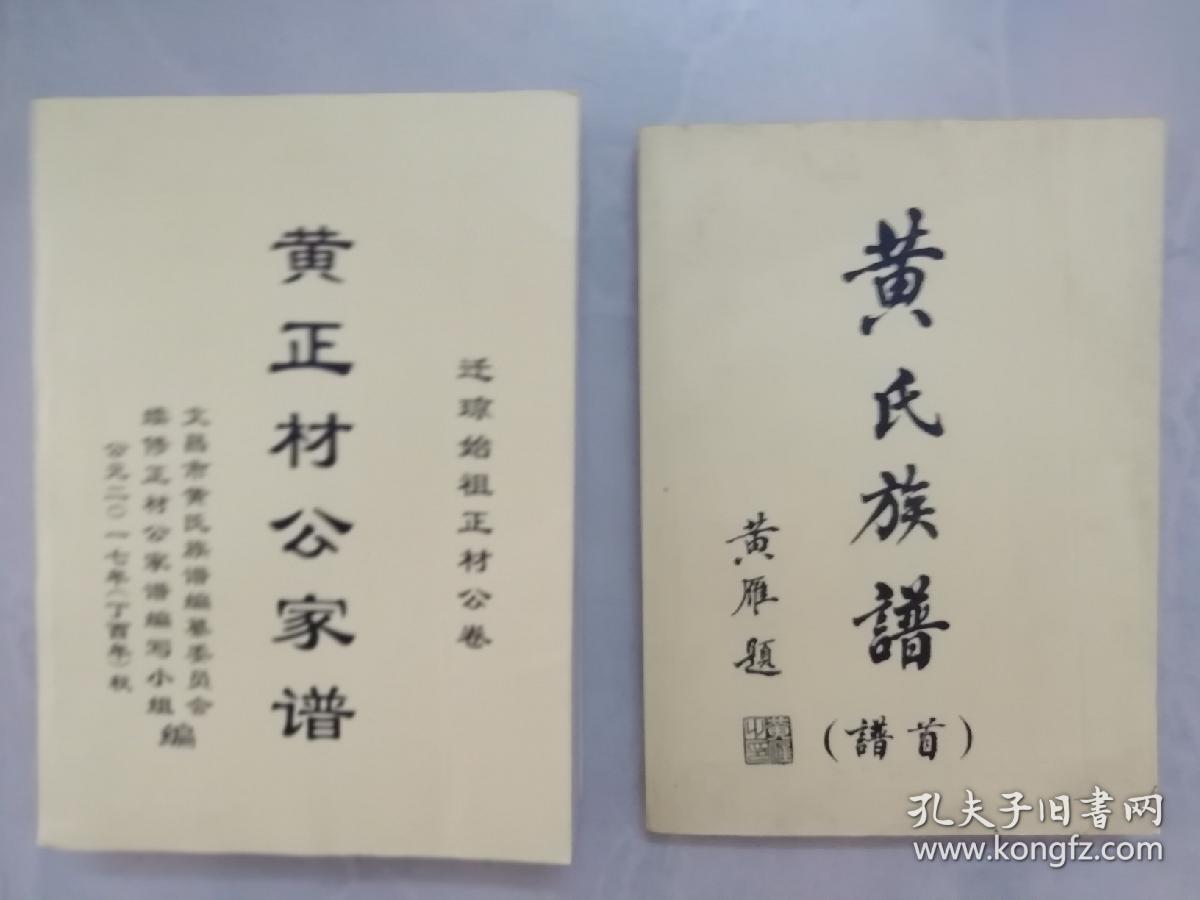 迁琼始祖正材公卷
黄正材公家谱
文昌市黄氏族谱编纂委员会
续修正材公家谱编写小组
编
公元二〇一七年(丁酉年)秋
黄氏族譜
(譜首)
黄雁題
孔夫子旧书网
www.kongfz.com